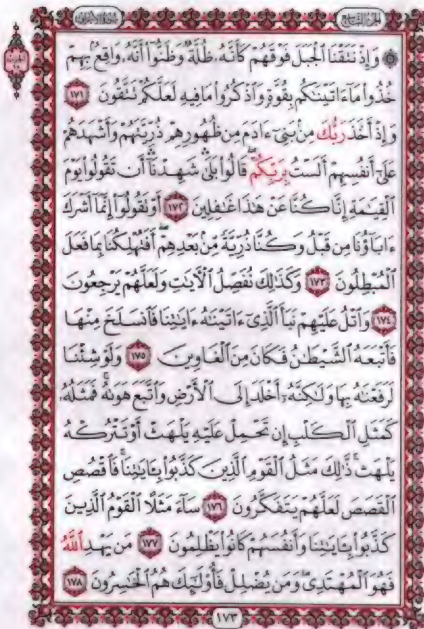 الجزء التاسع سورة الأعراف
۞ وَإِذْ نَتَقْنَا ٱلْجَبَلَ فَوْقَهُمْ كَأَنَّهُۥ ظُلَّةٌ وَظَنُّوٓا۟ أَنَّهُۥ وَاقِعٌۢ بِهِمْ
خُذُوا۟ مَآ ءَاتَيْنَٰكُم بِقُوَّةٍ وَٱذْكُرُوا۟ مَا فِيهِ لَعَلَّكُمْ تَتَّقُونَ ١٧١
وَإِذْ أَخَذَ رَبُّكَ مِنۢ بَنِىٓ ءَادَمَ مِن ظُهُورِهِمْ ذُرِّيَّتَهُمْ وَأَشْهَدَهُمْ
عَلَىٰٓ أَنفُسِهِمْ أَلَسْتُ بِرَبِّكُمْ ۖ قَالُوا۟ بَلَىٰ ۛ شَهِدْنَآ ۛ أَن تَقُولُوا۟ يَوْمَ
ٱلْقِيَٰمَةِ إِنَّا كُنَّا عَنْ هَٰذَا غَٰفِلِينَ ١٧٢ أَوْ تَقُولُوٓا۟ إِنَّمَآ أَشْرَكَ
ءَابَآؤُنَا مِن قَبْلُ وَكُنَّا ذُرِّيَّةً مِّنۢ بَعْدِهِمْ ۖ أَفَتُهْلِكُنَا بِمَا فَعَلَ
ٱلْمُبْطِلُونَ ١٧٣ وَكَذَٰلِكَ نُفَصِّلُ ٱلْءَايَٰتِ وَلَعَلَّهُمْ يَرْجِعُونَ
١٧٤ وَٱتْلُ عَلَيْهِمْ نَبَأَ ٱلَّذِىٓ ءَاتَيْنَٰهُ ءَايَٰتِنَا فَٱنسَلَخَ مِنْهَا
فَأَتْبَعَهُ ٱلشَّيْطَٰنُ فَكَانَ مِنَ ٱلْغَاوِينَ ١٧٥ وَلَوْ شِئْنَا
لَرَفَعْنَٰهُ بِهَا وَلَٰكِنَّهُۥٓ أَخْلَدَ إِلَى ٱلْأَرْضِ وَٱتَّبَعَ هَوَىٰهُ ۚ فَمَثَلُهُۥ
كَمَثَلِ ٱلْكَلْبِ إِن تَحْمِلْ عَلَيْهِ يَلْهَثْ أَوْ تَتْرُكْهُ
يَلْهَث ۚ ذَّٰلِكَ مَثَلُ ٱلْقَوْمِ ٱلَّذِينَ كَذَّبُوا۟ بِـَٔايَٰتِنَا ۚ فَٱقْصُصِ
ٱلْقَصَصَ لَعَلَّهُمْ يَتَفَكَّرُونَ ١٧٦ سَآءَ مَثَلًا ٱلْقَوْمُ ٱلَّذِينَ
كَذَّبُوا۟ بِـَٔايَٰتِنَا وَأَنفُسَهُمْ كَانُوا۟ يَظْلِمُونَ ١٧٧ مَن يَهْدِ ٱللَّهُ
فَهُوَ ٱلْمُهْتَدِى ۖ وَمَن يُضْلِلْ فَأُو۟لَٰٓئِكَ هُمُ ٱلْخَٰسِرُونَ ١٧٨
١٧٣